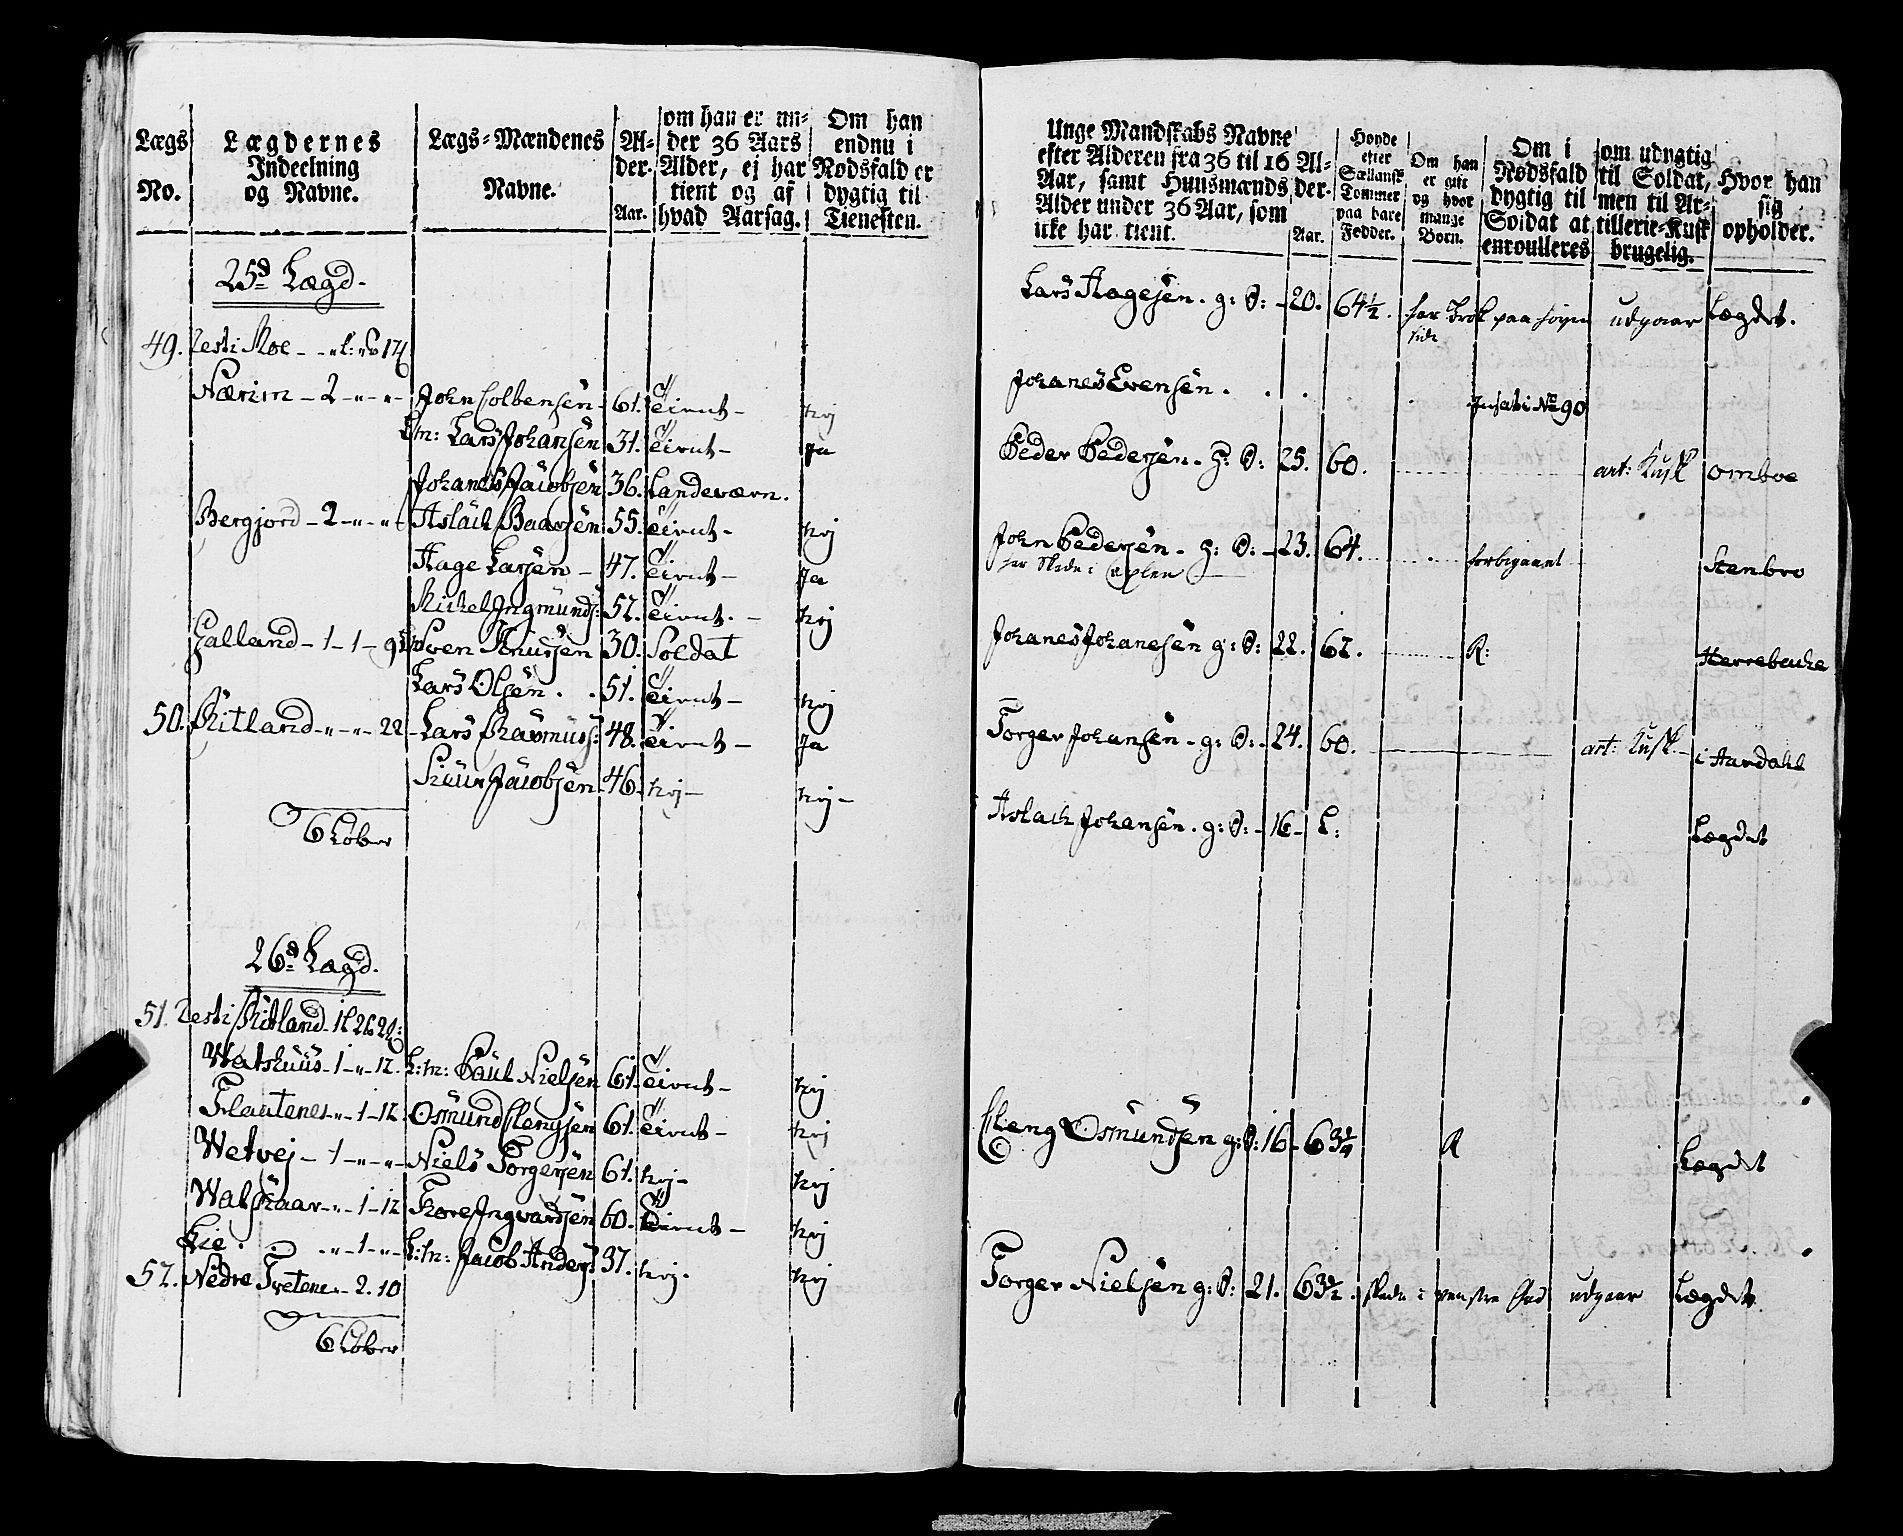 Lægs No.
Lægdernes Indeelning og Navne.
Lægs-Mændenes Navne.
Alder. Aar.
om han er under 36 Aars Alder, ej har tient og af hvad Aarsag.
Om han endnu i Nødsfald er dygtig til Tienesten.
25d Lægd.
49. Resti Moe
Nærim - 2 - " - " - John Colbensen 61. tient - nej
Lars Johansen 31. tient - Ja
Johanes Jacobsen 36. Landeværn.
Bergjord - 2 - " - " Aslach Baarsen 55. tient - nej
Aage Larsen - 47. tient - Ja
Michel Ingmunds: 52. tient. - nej
Galland - 1 - 1 - 9 Sven Knusen 30. Soldat
Lars Olsen . . 51. tient - nej
50. Ritland - " - " - 22 - Lars Rasmuss: 48. tient - Ja
Siur Jacobsen 46. nej - nej -
6 Løber
26d Lægd.
51. Resti Ritland
Watshuus - 1 - " - 12. L:m: Paul Nielsen 61. tient - nej
Flautene - " - 1 - 12. Osmund Clengsen 61. tient - nej
Wetvej - 1 - " - " - Niels Torgersen 61. nej - nej
Walskaar - " - 1 - 12 Tore Ingvarsen 60. tient - nej
Lie . . " - 1 - " - L:m: Jacob Anders: 37. nej. nej
52. Nedre Tvetene - 2. 10
6 Løber
Unge Mandskabs Navne efter Alderen fra 36 til 16 Aar, samt Huusmænds Alder under 36 Aar, som icke har tient.
Alder. Aar.
Høyde efter Sællansk Tommer paa bare Fødder.
Om han er gift og hvor mange Børn.
Om i Nødsfald dygtig til Soldat at enroulleres
om udygtig til Soldat, men til Artillerie-Kusk brugelig.
Hvor han sig opholder.
Lars Aagesen. g: S: - 20. 64½. har Brok paa høyre side udgaar Lægdet.
Johanes Evensen . . . . Indsat i No 90
Peder Pedersen. g: S: 25. 60. art: Kusk omboe
John Pedersen - g: S: - 23. 64. forbigaaet Stenbro
har Skade i
Johanes Johanesen g: S: 22. 62. R:
Torger Johansen - g: S: - 24. 60. art: Kusk - i Aardahl
Aslach Johansen. g: S: - 16 - L: Lægdet
Cleng Osmundsen g: S: 16 - 63¼ R Lægdet
Torger Nielsen g: S: 21. 63½. skade i venstre udgaar Lægdet.